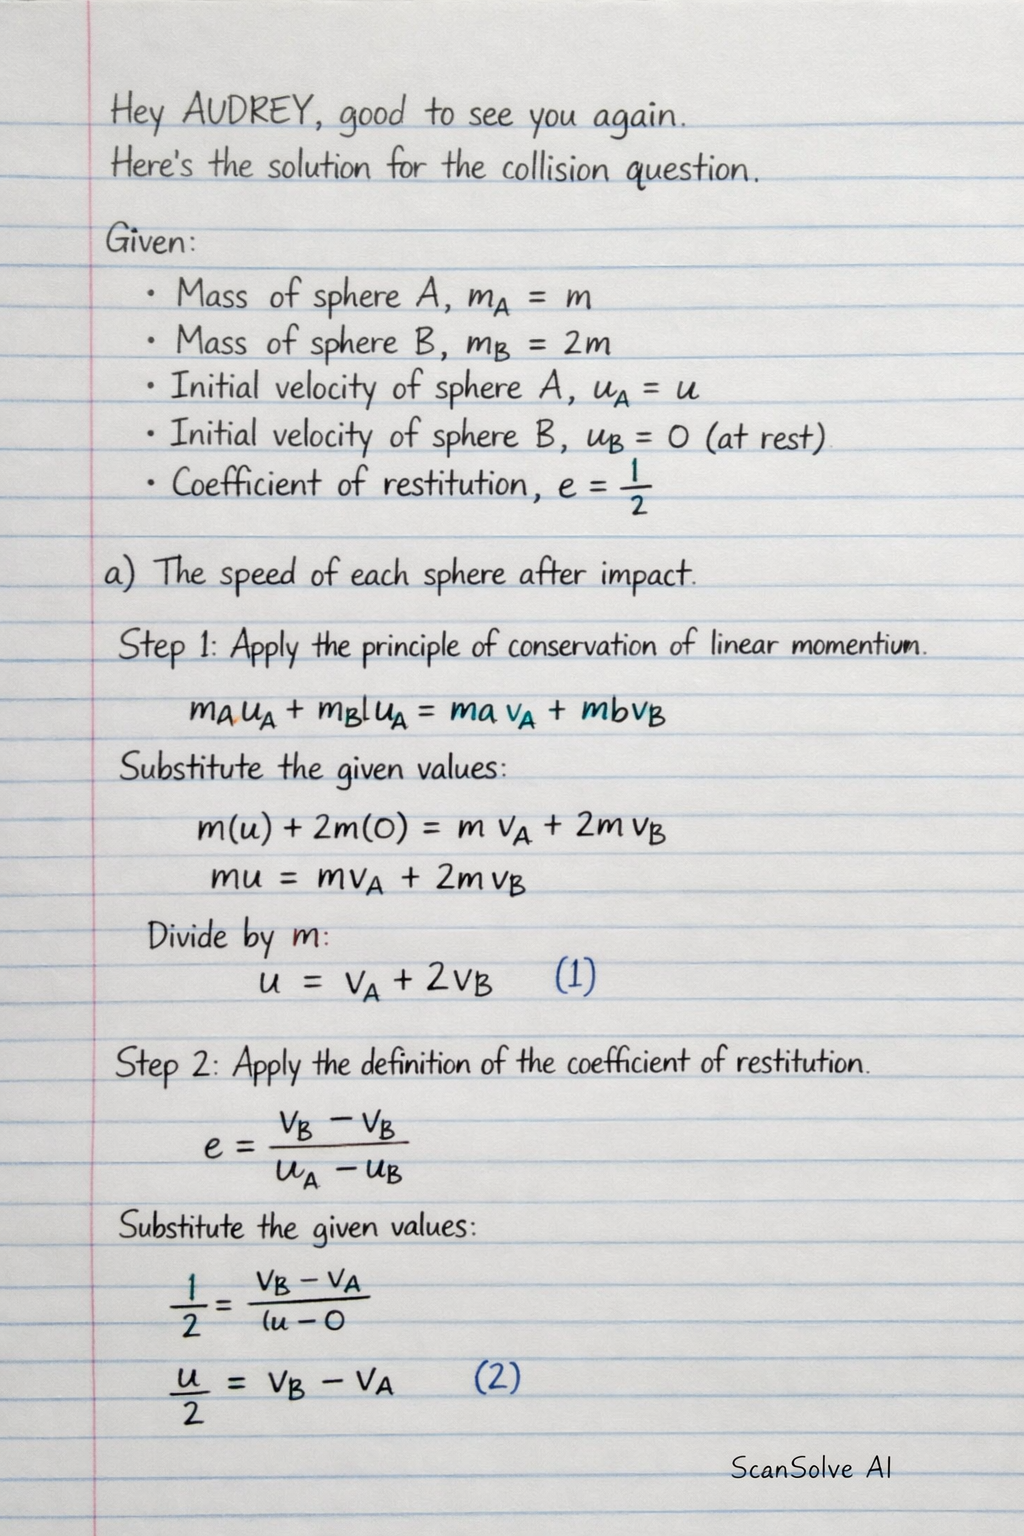 Hey AUDREY, good to see you again.
Here's the solution for the collision question.
Given:
• Mass of sphere A, m_A = m
• Mass of sphere B, m_B = 2m
• Initial velocity of sphere A, u_A = u
• Initial velocity of sphere B, u_B = 0 (at rest)
• Coefficient of restitution, e = 1/2
a) The speed of each sphere after impact.
Step 1: Apply the principle of conservation of linear momentium.
m_A u_A + m_B l u_A = ma v_A + mbv_B
Substitute the given values:
m(u) + 2m(0) = m v_A + 2m v_B
mu = mv_A + 2m v_B
Divide by m:
u = v_A + 2v_B (1)
Step 2: Apply the definition of the coefficient of restitution.
e = (v_B − v_B)/(u_A − u_B)
Substitute the given values:
1/2 = (v_B − v_A)/(u − 0
u/2 = v_B − v_A (2)
ScanSolve AI